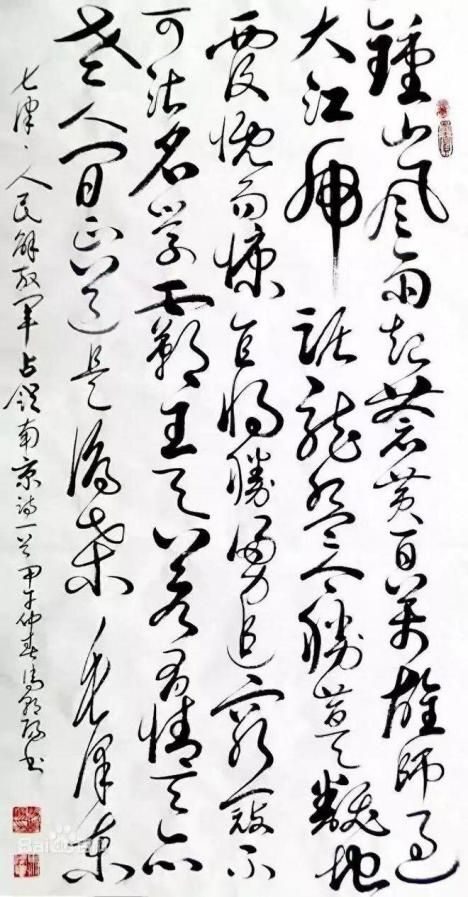 鍾山风雨起蒼黄百万雄师过
大江虎踞龙盘今勝昔天飜地
覆慨而慷宜将勝勇追穷寇不
可沽名学霸王天若有情天亦
老人间正道是滄桑 毛泽东
七律·人民解放军占领南京诗一首甲午仲春书
Baidu百科